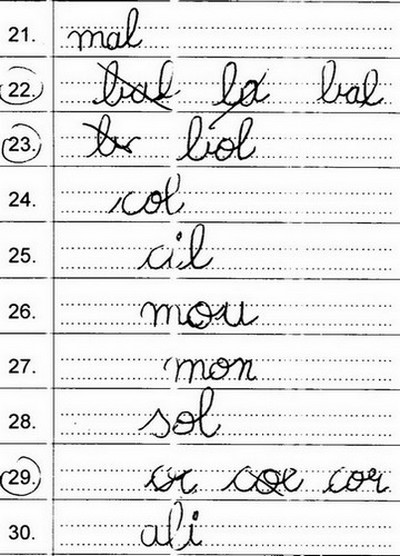 21. mal
22. bal la bal
23. br biol
24. col
25. cil
26. mou
27. mon
28. sol
29. cor coe cor
30. ali